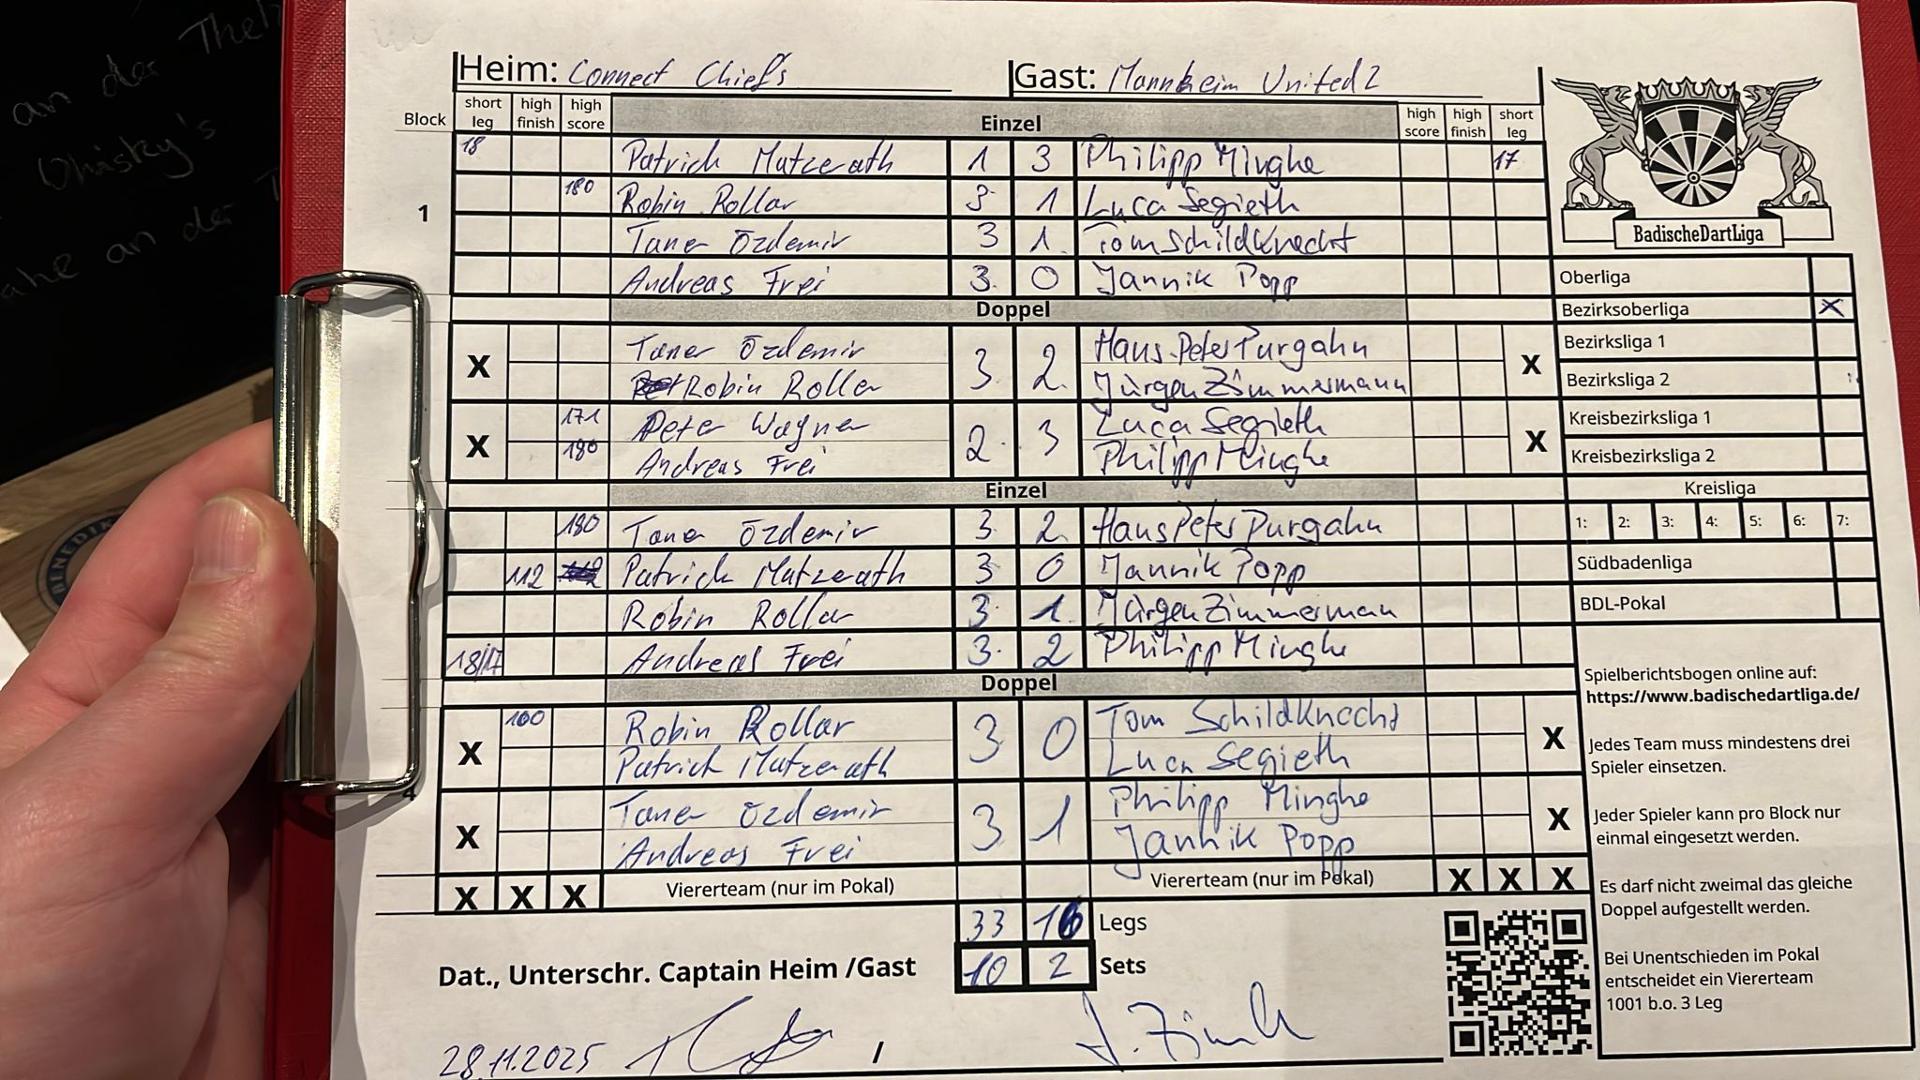 an der Thek
Whisky's
ahe an der T
BENEDIK
Heim: Connect Chiefs Gast: Mannheim United 2
Block short leg high finish high score Einzel high score high finish short leg
18 Patrick Matzerath 1 3 Philipp Minghe 17
1
180 Robin Rollar 3 1 Luca Segieth
Taner Özdemir 3 1 Tom Schildknecht
Andreas Frei 3 0 Jannik Popp
Doppel
X Taner Özdemir 3 2 Hans-Peter Purgahn X
Robin Roller Jürgen Zimmermann
X 171 Peter Wagner 2 3 Luca Segieth X
180 Andreas Frei Philipp Minghe
Einzel
180 Taner Özdemir 3 2 Hans Peter Purgahn
112 Patrick Matzerath 3 0 Jannik Popp
Robin Rollar 3 1 Jürgen Zimmerman
18/17 Andreas Frei 3 2 Philipp Minghe
Doppel
X 100 Robin Rollar 3 0 Tom Schildknecht X
Patrick Matzerath Luca Segieth
4
X Taner Özdemir 3 1 Philipp Minghe X
Andreas Frei Jannik Popp
X X X Viererteam (nur im Pokal) Viererteam (nur im Pokal) X X X
33 16 Legs
10 2 Sets
Dat., Unterschr. Captain Heim /Gast
28.11.2025 /
BadischeDartLiga
Oberliga
Bezirksoberliga X
Bezirksliga 1
Bezirksliga 2
Kreisbezirksliga 1
Kreisbezirksliga 2
Kreisliga
1: 2: 3: 4: 5: 6: 7:
Südbadenliga
BDL-Pokal
Spielberichtsbogen online auf:
https://www.badischedartliga.de/
Jedes Team muss mindestens drei
Spieler einsetzen.
Jeder Spieler kann pro Block nur
einmal eingesetzt werden.
Es darf nicht zweimal das gleiche
Doppel aufgestellt werden.
Bei Unentschieden im Pokal
entscheidet ein Viererteam
1001 b.o. 3 Leg